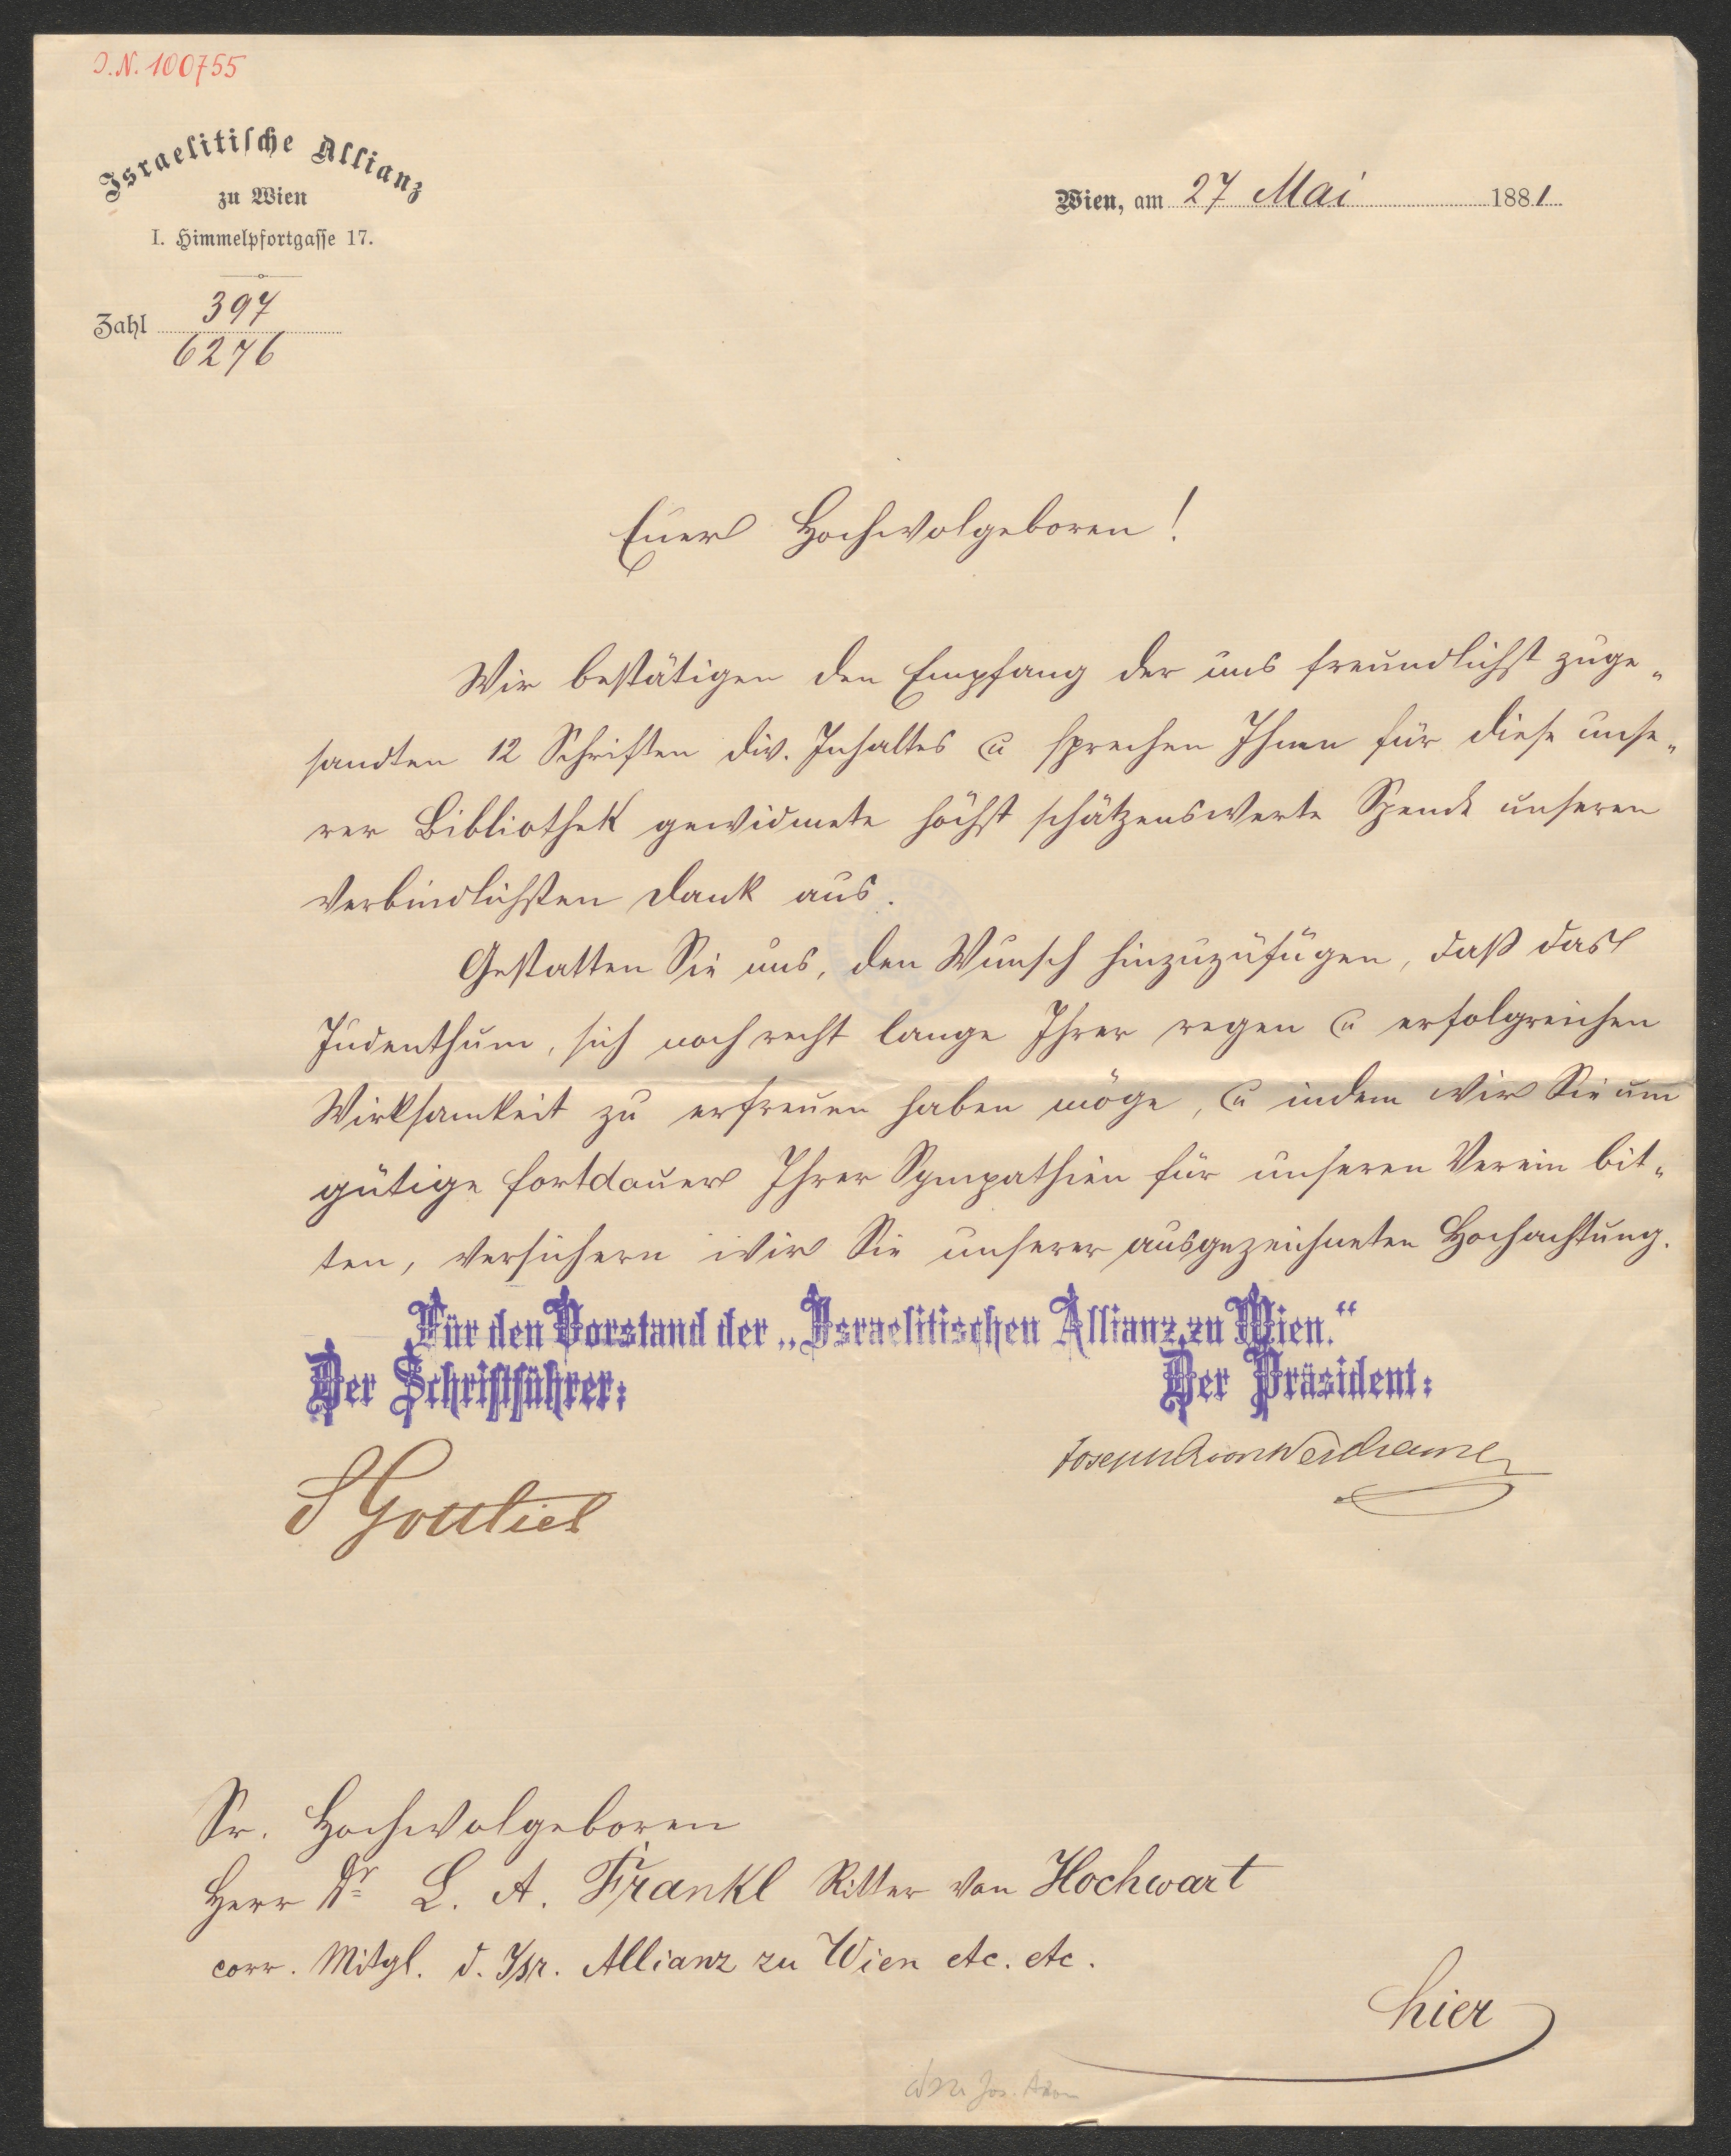 I.N. 100755
Israelitische Allianz
zu Wien
I. Himmelpfortgasse 17.
Wien, am 27 Mai 1881
Zahl 397
6276
Euer Hochwolgeboren!
Wir bestätigen den Empfang der uns freundlichst zuge„
sandten 12 Schriften div. Inhaltes u sprechen Ihnen für diese unse„
rer Bibliothek gewidmete höchst schätzenswerte Spende unseren
verbindlichsten Dank aus.
Gestatten Sie uns, den Wunsch hinzuzufügen, daß das
Judenthum, sich noch recht lange Ihrer regen u erfolgreichen
Wirksamkeit zu erfreuen haben möge, u indem wir Sie um
gütige Fortdauer Ihrer Sympathien für unseren Verein bit„
ten, versichern wir Sie unserer ausgezeichneten Hochachtung.
Für den Vorstand der „Israelitischen Allianz zu Wien."
Der Schriftführer: Der Präsident:
S Gottlieb
Joseph Ritter von Wertheimer
Sr. Hochwolgeboren
Herr Dr L. A. Frankl Ritter von Hochwart
corr. Mitgl. d. Isr. Allianz zu Wien etc. etc.
hier